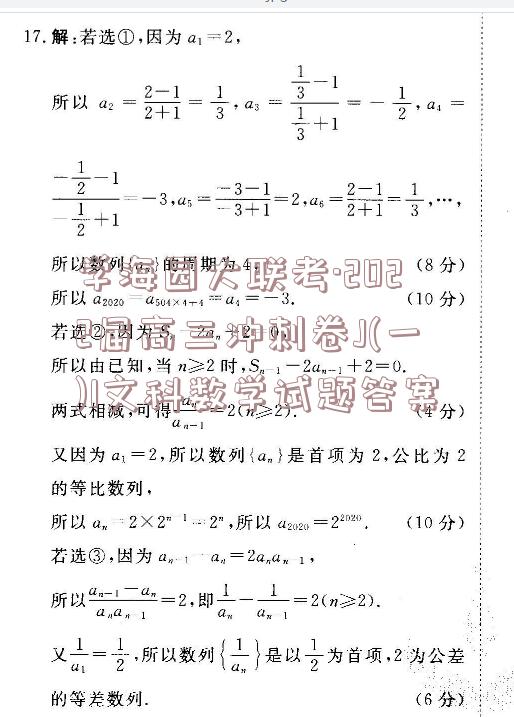 17. 解:若选①,因为 a₁=2,
所以 a₂ = (2-1)/(2+1) = 1/3, a₃ = (1/3-1)/(1/3+1) = -1/2, a₄ =
(-1/2-1)/(-1/2+1) = -3, a₅ = (-3-1)/(-3+1) = 2, a₆ = (2-1)/(2+1) = 1/3, …,
所以数列{aₙ}的周期为 4, (8 分)
所以 a₂₀₂₀ = a₅₀₄ₓ₄₊₄ = a₄ = -3. (10 分)
若选②,因为 Sₙ-2aₙ+2=0,
所以由已知,当 n≥2 时,Sₙ₋₁-2aₙ₋₁+2=0.
两式相减,可得 aₙ/aₙ₋₁ = 2(n≥2). (4 分)
又因为 a₁=2,所以数列{aₙ}是首项为 2,公比为 2
的等比数列,
所以 aₙ=2×2ⁿ⁻¹=2ⁿ,所以 a₂₀₂₀=2²⁰²⁰. (10 分)
若选③,因为 aₙ₋₁-aₙ=2aₙaₙ₋₁,
所以 (aₙ₋₁-aₙ)/(aₙaₙ₋₁) = 2,即 1/aₙ - 1/aₙ₋₁ = 2(n≥2).
又 1/a₁ = 1/2,所以数列{1/aₙ}是以 1/2 为首项,2 为公差
的等差数列. (6 分)
学海园大联考·202
2届高三冲刺卷J(一
)J文科数学试题答案